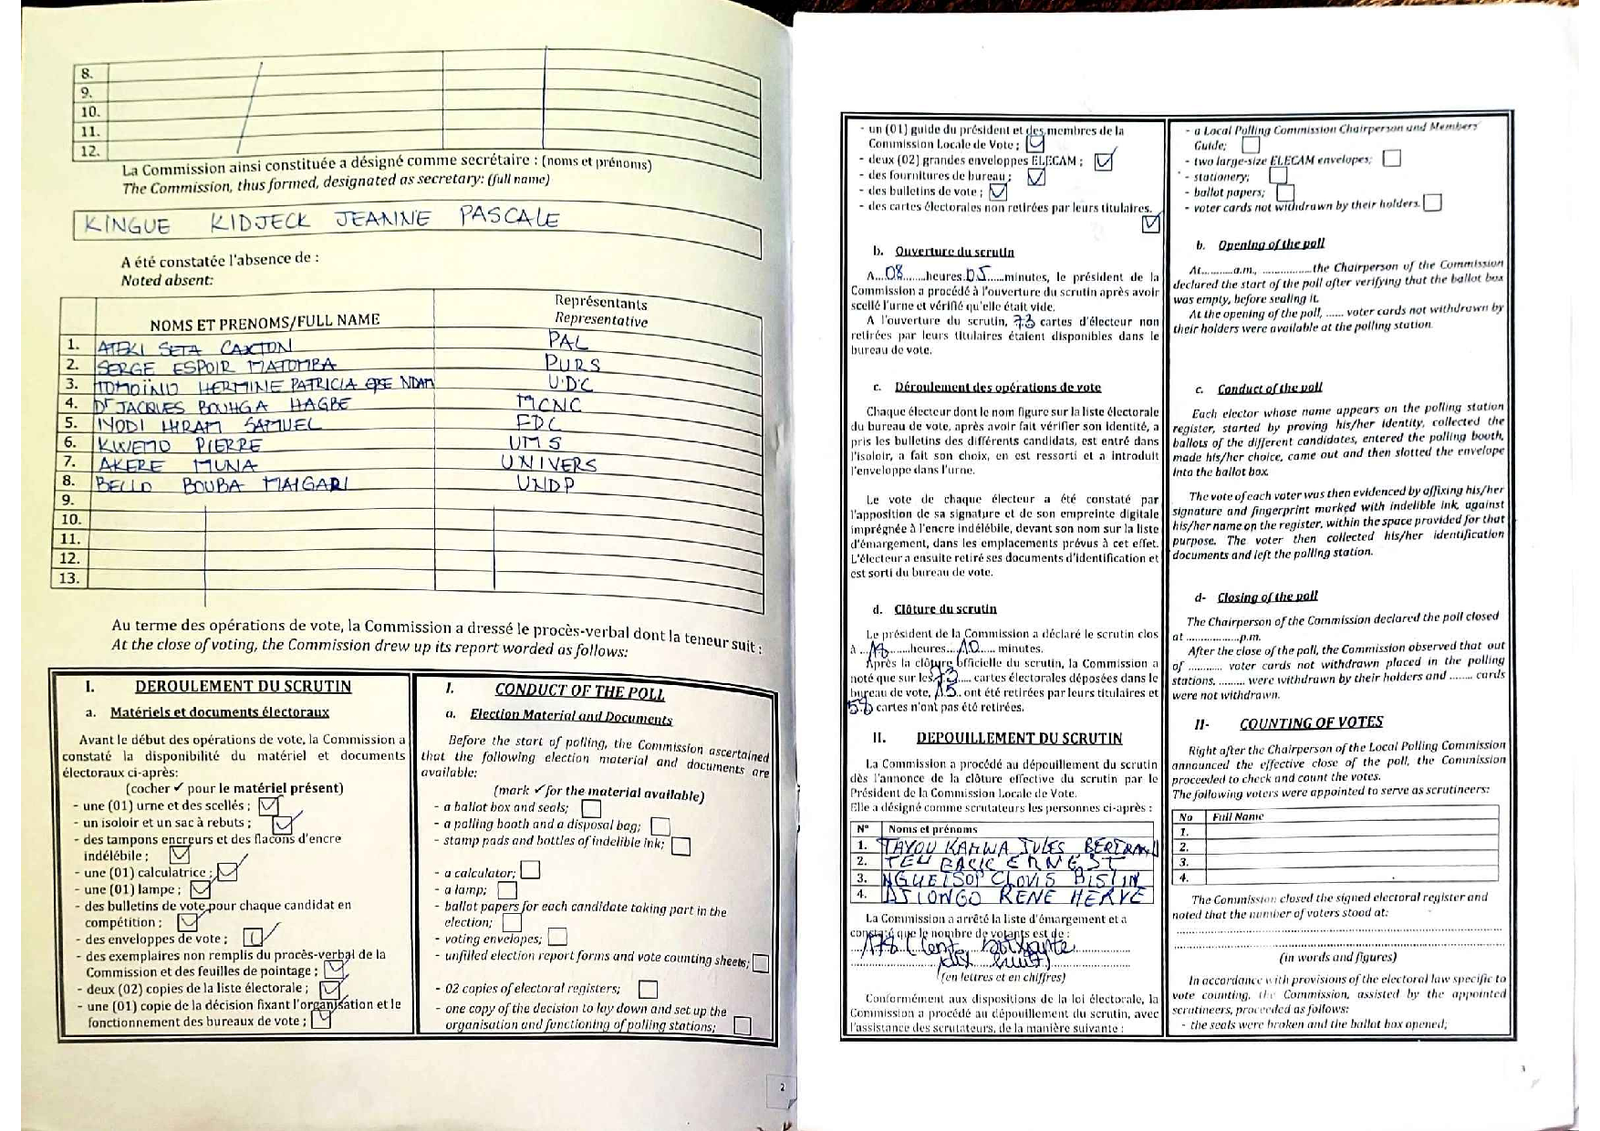 8.
9.
10.
11.
12.
La Commission ainsi constituée a désigné comme secrétaire : (noms et prénoms)
The Commission, thus formed, designated as secretary: (full name)
KINGUE KIDJECK JEANINE PASCALE
A été constatée l'absence de :
Noted absent:
NOMS ET PRENOMS/FULL NAME
Représentants
Representative
1. ATEKI SETA CAXTON PAL
2. SERGE ESPOIR MATOMBA PURS
3. TOMAÏNO HERMINE PATRICIA EPSE NDAM UDC
4. Dr JACQUES BOUHGA HAGBE MCNC
5. IYODI HIRAM SAMUEL FDC
6. KWEMO PIERRE UMS
7. AKERE MUNA UNIVERS
8. BELLO BOUBA MAIGARI UNDP
9.
10.
11.
12.
13.
Au terme des opérations de vote, la Commission a dressé le procès-verbal dont la teneur suit :
At the close of voting, the Commission drew up its report worded as follows:
I. DEROULEMENT DU SCRUTIN
a. Matériels et documents électoraux
Avant le début des opérations de vote, la Commission a
constaté la disponibilité du matériel et documents
électoraux ci-après:
(cocher ✓ pour le matériel présent)
- une (01) urne et des scellés ;
- un isoloir et un sac à rebuts ;
- des tampons encreurs et des flacons d'encre
indélébile ;
- une (01) calculatrice ;
- une (01) lampe ;
- des bulletins de vote pour chaque candidat en
compétition ;
- des enveloppes de vote ;
- des exemplaires non remplis du procès-verbal de la
Commission et des feuilles de pointage ;
- deux (02) copies de la liste électorale ;
- une (01) copie de la décision fixant l'organisation et le
fonctionnement des bureaux de vote ;
I. CONDUCT OF THE POLL
a. Election Material and Documents
Before the start of polling, the Commission ascertained
that the following election material and documents are
available:
(mark ✓ for the material available)
- a ballot box and seals;
- a polling booth and a disposal bag;
- stamp pads and bottles of indelible ink;
- a calculator;
- a lamp;
- ballot papers for each candidate taking part in the
election;
- voting envelopes;
- unfilled election report forms and vote counting sheets;
- 02 copies of electoral registers;
- one copy of the decision to lay down and set up the
organisation and functioning of polling stations;
2
- un (01) guide du président et des membres de la
Commission Locale de Vote ;
- deux (02) grandes enveloppes ELECAM ;
- des fournitures de bureau ;
- des bulletins de vote ;
- des cartes électorales non retirées par leurs titulaires.
b. Ouverture du scrutin
A...08...heures.05...minutes, le président de la
Commission a procédé à l'ouverture du scrutin après avoir
scellé l'urne et vérifié qu'elle était vide.
A l'ouverture du scrutin, 73 cartes d'électeur non
retirées par leurs titulaires étaient disponibles dans le
bureau de vote.
c. Déroulement des opérations de vote
Chaque électeur dont le nom figure sur la liste électorale
du bureau de vote, après avoir fait vérifier son identité, a
pris les bulletins des différents candidats, est entré dans
l'isoloir, a fait son choix, en est ressorti et a introduit
l'enveloppe dans l'urne.
Le vote de chaque électeur a été constaté par
l'apposition de sa signature et de son empreinte digitale
imprégnée à l'encre indélébile, devant son nom sur la liste
d'émargement, dans les emplacements prévus à cet effet.
L'électeur a ensuite retiré ses documents d'identification et
est sorti du bureau de vote.
d. Clôture du scrutin
Le président de la Commission a déclaré le scrutin clos
à ...18...heures...10... minutes.
Après la clôture officielle du scrutin, la Commission a
noté que sur les 73 cartes électorales déposées dans le
bureau de vote, 15 ont été retirées par leurs titulaires et
58 cartes n'ont pas été retirées.
II. DEPOUILLEMENT DU SCRUTIN
La Commission a procédé au dépouillement du scrutin
dès l'annonce de la clôture effective du scrutin par le
Président de la Commission Locale de Vote.
Elle a désigné comme scrutateurs les personnes ci-après :
N° Noms et prénoms
1. TAYOU KAMWA JULES BERTRAND
2. ERNEST
3. CLOVIS
4. RENE HERVE
La Commission a arrêté la liste d'émargement et a
constaté que le nombre de votants est de :
178 (cent soixante
dix huit)
(en lettres et en chiffres)
Conformément aux dispositions de la loi électorale, la
Commission a procédé au dépouillement du scrutin, avec
l'assistance des scrutateurs, de la manière suivante :
- a Local Polling Commission Chairperson and Members'
Guide;
- two large-size ELECAM envelopes;
- stationery;
- ballot papers;
- voter cards not withdrawn by their holders.
b. Opening of the poll
At...........a.m., ...............the Chairperson of the Commission
declared the start of the poll after verifying that the ballot box
was empty, before sealing it.
At the opening of the poll, ...... voter cards not withdrawn by
their holders were available at the polling station.
c. Conduct of the poll
Each elector whose name appears on the polling station
register, started by proving his/her identity, collected the
ballots of the different candidates, entered the polling booth,
made his/her choice, came out and then slotted the envelope
into the ballot box.
The vote of each voter was then evidenced by affixing his/her
signature and fingerprint marked with indelible ink, against
his/her name on the register, within the space provided for that
purpose. The voter then collected his/her identification
documents and left the polling station.
d- Closing of the poll
The Chairperson of the Commission declared the poll closed
at ................p.m.
After the close of the poll, the Commission observed that out
of ............ voter cards not withdrawn placed in the polling
stations, ......... were withdrawn by their holders and ........ cards
were not withdrawn.
II- COUNTING OF VOTES
Right after the Chairperson of the Local Polling Commission
announced the effective close of the poll, the Commission
proceeded to check and count the votes.
The following voters were appointed to serve as scrutineers:
No Full Name
1.
2.
3.
4.
The Commission closed the signed electoral register and
noted that the number of voters stood at:
(in words and figures)
In accordance with provisions of the electoral law specific to
vote counting, the Commission, assisted by the appointed
scrutineers, proceeded as follows:
- the seals were broken and the ballot box opened;